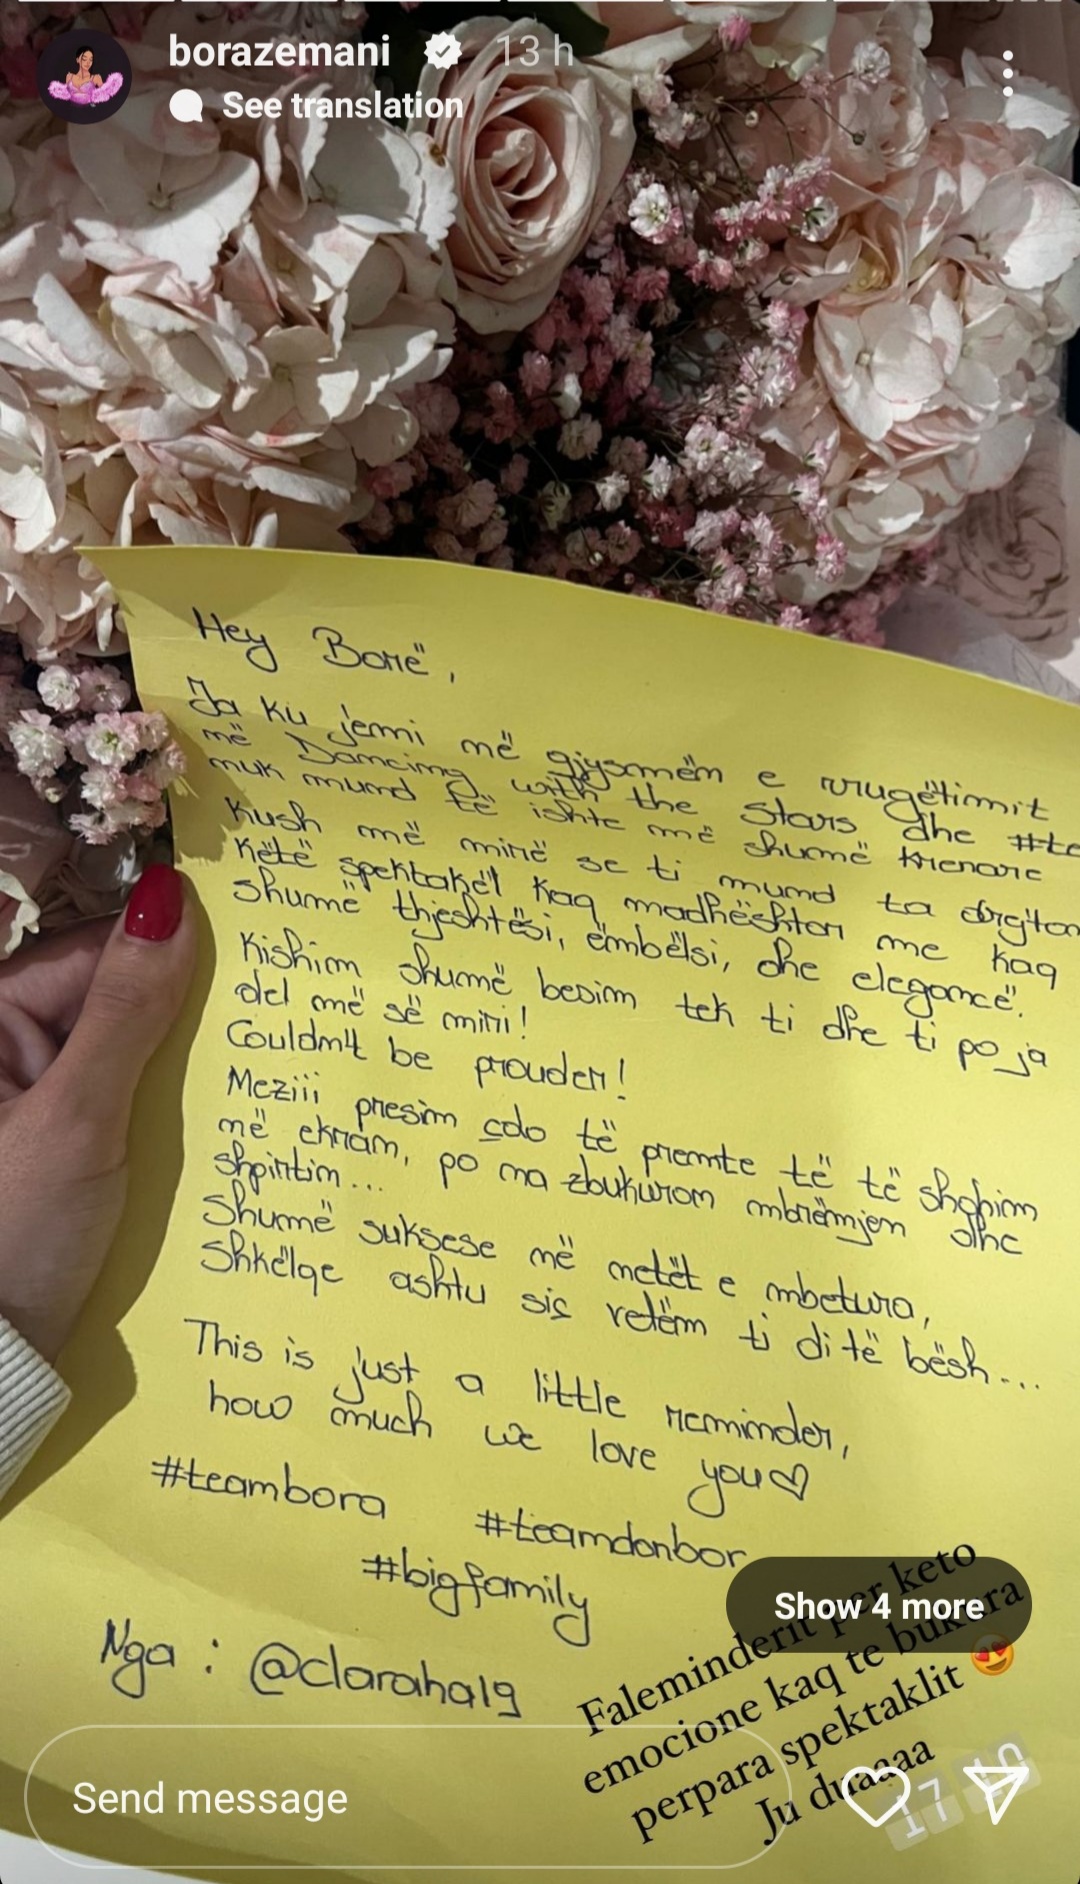 borazemani 13 h
See translation
Hey Borë,
Ja ku jemi më gjysmëm e rrugëtimit
më Dancing with the Stars dhe #te
nuk mund të ishte më shumë krenare
Kush më mirë se ti mund ta drejton
këtë spektakël kaq madhështor me kaq
shumë thjeshtësi, ëmbëlsi, dhe elegancë.
Kishim shumë besim tek ti dhe ti po ja
del më së miri!
Couldn't be prouder!
Meziii presim çdo të premte të të shohim
në ekran, po na zbukuron mbrëmjen dhe
shpirtim...
Shumë suksese në netët e mbetura,
Shkëlqe ashtu siç vetëm ti di të bësh...
This is just a little reminder,
how much we love you♡
#teambora #teamdonbor
#bigfamily
Nga : @claraha19
Show 4 more
Faleminderit per keto
emocione kaq te bukura
perpara spektaklit 😍
Ju duaaaa
17 10
Send message